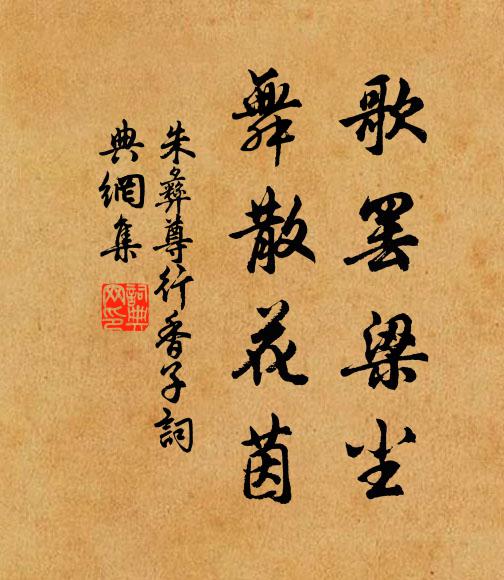 歌罢梁尘
舞散花茵
朱彝尊行香子詞
典網集
詞典
网印